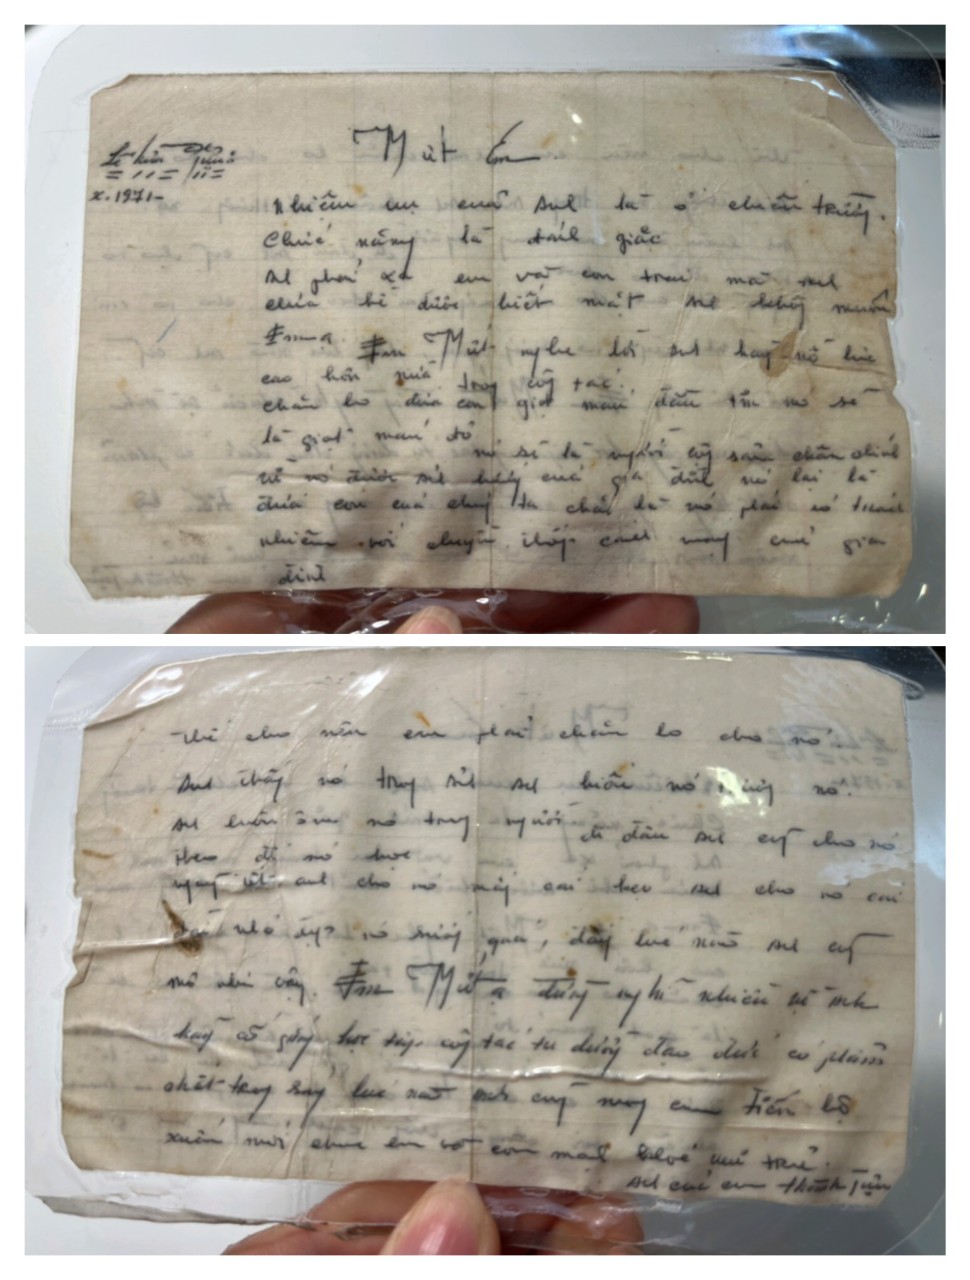 Mứt Em
X.1971-
Nhiệm vụ của anh là ở chiến trường.
Chức năng là đánh giặc
anh phải xa em và con trai mà anh
chưa hề được biết mặt anh không muốn
Em ạ. Em Mứt nghe lời anh hãy nỗ lực
cao hơn nữa trong công tác.
chăm lo đứa con giọt máu đầu tim nó sẽ
là giọt máu đỏ
nó sẽ là người cộng sản chân chính
vì nó được sinh trưởng của gia đình nó lại là
đứa con của chúng ta chắc là nó phải có trách
nhiệm với chuyện cách mạng của gia
đình
Thế cho nên em phải chăm lo cho nó.
anh thấy nó trong anh hiểu nó
anh luôn ôm nó trong người đi đâu anh cũng cho nó
theo đi nó học
anh cho nó mấy cái kẹo anh cho nó cái
nhỏ ấy? nó sướng quá, dậy lúc nào anh cũng
mơ như vậy. Em Mứt ạ đừng nghĩ nhiều về anh
hãy cố gắng học tập công tác tu dưỡng đạo đức có phẩm
chất trong sáng lúc nào anh cũng mong em tiến bộ
xuân mới chúc em và con mạnh khoẻ vui trẻ.
anh của em